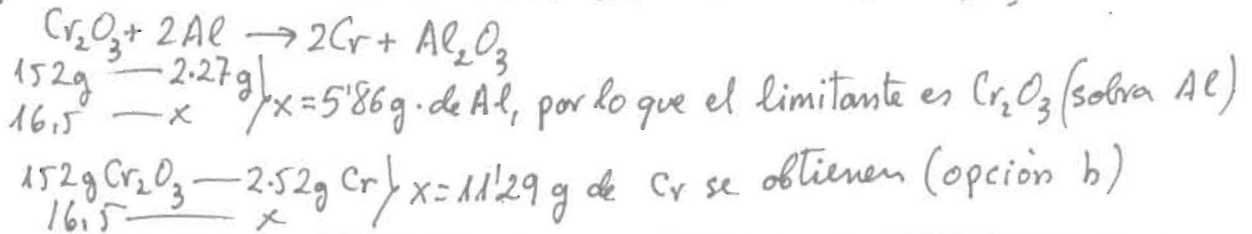 Cr₂O₃ + 2Al → 2Cr + Al₂O₃
152g — 2·27g } x = 5'86g. de Al, por lo que el limitante es Cr₂O₃ (sobra Al)
16,5 — x
152g Cr₂O₃ — 2·52g Cr } x = 11'29 g de Cr se obtienen (opción b)
16,5 — x